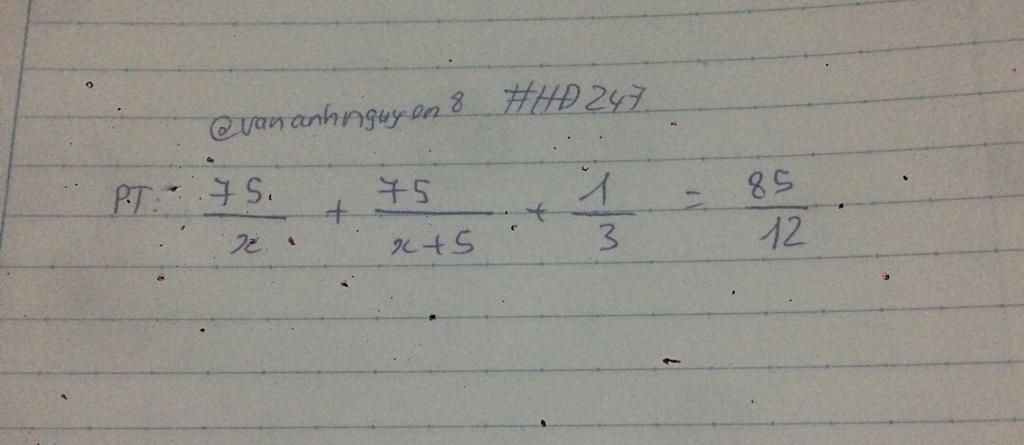 @vananhnguyen8 #HĐ247
PT: 75/x + 75/x+5 + 1/3 = 85/12